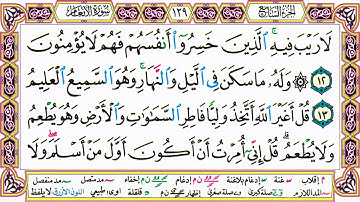 الجزء السابع ١٢٩ سورة الأنعام
لَا رَيْبَ فِيهِ ۚ ٱلَّذِينَ خَسِرُوٓا۟ أَنفُسَهُمْ فَهُمْ لَا يُؤْمِنُونَ
۝١٢ ۞ وَلَهُۥ مَا سَكَنَ فِى ٱلَّيْلِ وَٱلنَّهَارِ ۚ وَهُوَ ٱلسَّمِيعُ ٱلْعَلِيمُ
۝١٣ قُلْ أَغَيْرَ ٱللَّهِ أَتَّخِذُ وَلِيًّا فَاطِرِ ٱلسَّمَٰوَٰتِ وَٱلْأَرْضِ وَهُوَ يُطْعِمُ
وَلَا يُطْعَمُ ۗ قُلْ إِنِّىٓ أُمِرْتُ أَنْ أَكُونَ أَوَّلَ مَنْ أَسْلَمَ ۖ وَلَا